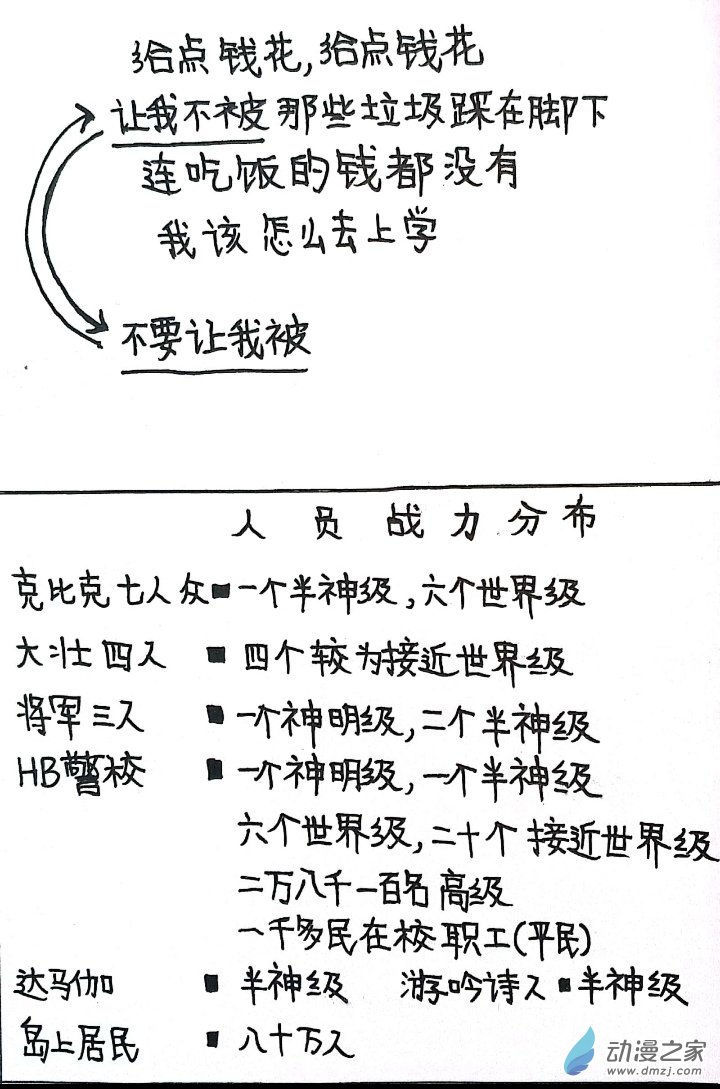 给点钱花,给点钱花
让我不被那些垃圾踩在脚下
连吃饭的钱都没有
我该怎么去上学
不要让我被
人员战力分布
克比克七人众■一个半神级,六个世界级
大壮四人■四个较为接近世界级
将军三人■一个神明级,二个半神级
HB警校■一个神明级,一个半神级
六个世界级,二十个接近世界级
二万八千一百名高级
一千多民在校职工(平民)
达马伽■半神级 游吟诗人■半神级
岛上居民■八十万人
动漫之家
www.dmzj.com